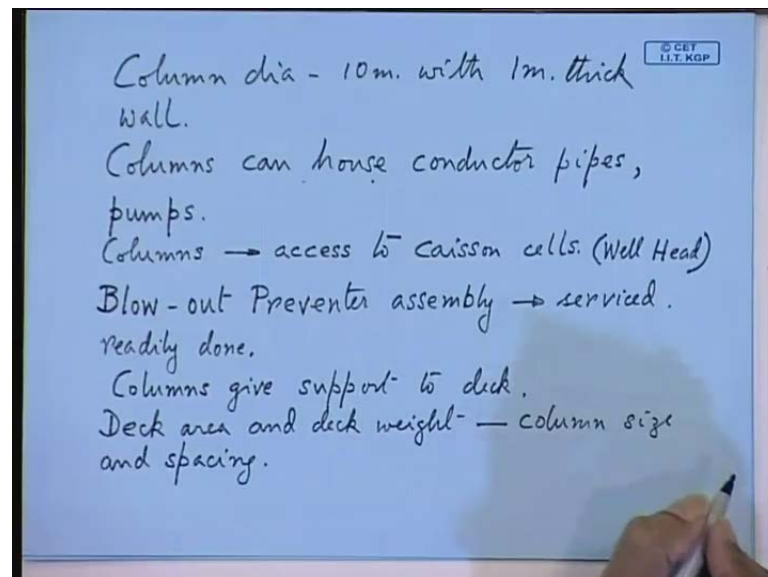 © CET
I.I.T. KGP
Column dia - 10m. with 1m. thick
wall.
Columns can house conductor pipes,
pumps.
Columns → access to caisson cells. (Well Head)
Blow-out Preventer assembly → serviced.
readily done.
Columns give support to deck.
Deck area and deck weight — column size
and spacing.